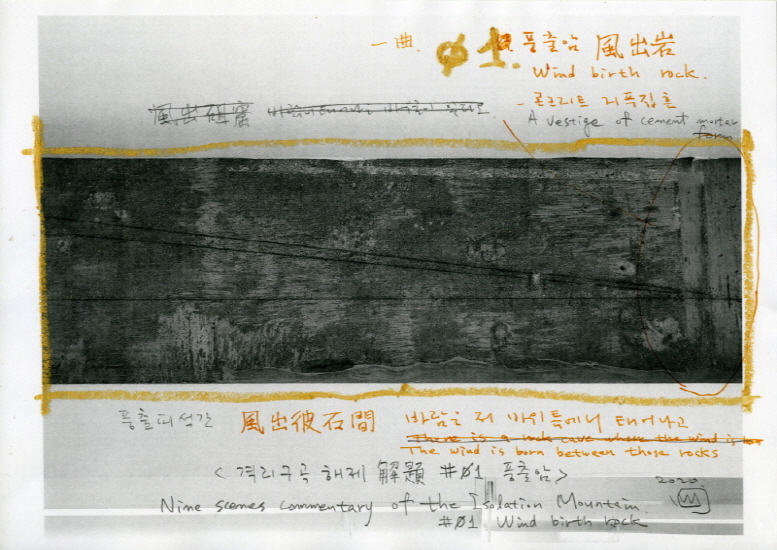 一曲. ø1. 풍출암 風出岩
Wind birth rock.
- 콘크리트 거푸집흔
A vestige of cement mortar
form
風出硏窟
풍출피석간 風出彼石間 바람은 저 바위틈에서 태어나고
There is a rock cave where the wind is
The wind is born between those rocks
< 격리구곡 해제 解題 #ø1 풍출암 >
2020.
Nine scenes commentary of the Isolation Mountain.
#ø1 Wind birth rock